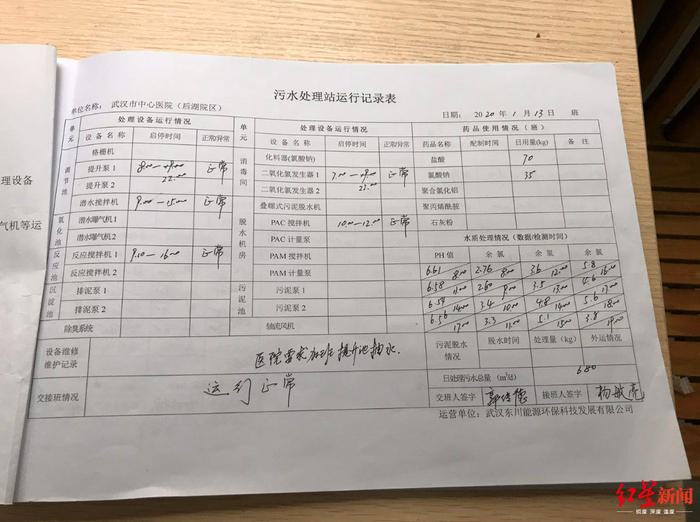 污水处理站运行记录表
单位名称: 武汉市中心医院（后湖院区） 日期: 2020 年 1 月 13 日 班
单元 处理设备运行情况 单元 处理设备运行情况 药品使用情况（届）
设备名称 启停时间 正常/异常 设备名称 启停时间 正常/异常 药品名称 配制时间 日用量(kg) 备注
调节池 格栅机 消毒间 化料器(氯酸钠) 盐酸 70
提升泵 1 正常 二氧化氯发生器 1 正常 氯酸钠 35
理设备 提升泵 2 22:00 二氧化氯发生器 2 22:00 聚合氯化铝
潜水搅拌机 9:00—15:00 正常 脱水机房 叠螺式污泥脱水机 聚丙烯酰胺
气机等运 氧化池 潜水曝气机 1 PAC 搅拌机 10:00—12:00 正常 石灰粉
潜水曝气机 2 PAC 计量泵 水质处理情况（数据/检测时间）
反应池 反应搅拌机 1 9:00—16:00 正常 PAM 搅拌机 PH 值 余氯 余氯 余氯
反应搅拌机 2 PAM 计量泵 6.61 8:00 2.76 8:00 3.6 12:00 5.8 16:00
沉淀池 排泥泵 1 污泥池 污泥泵 1 6.58 11:00 2.60 9:00 3.5 13:00 4.6 17:00
排泥泵 2 污泥泵 2 6.59 14:00 3.4 10:00 4.8 14:00 5.6 18:00
除臭系统 轴流风机 6.56 17:00 3.3 11:00 5.1 15:00 3.8 19:00
设备维修维护记录 医院需求加班 提升池抽水. 污泥脱水情况 脱水时间 处理量（kg） 外运情况
日处理污水总量（m³/d） 680
交接班情况 运行正常 交班人签字 接班人签字 杨敏亮
运营单位: 武汉东川能源环保科技发展有限公司
红星新闻
锐度 深度 温度